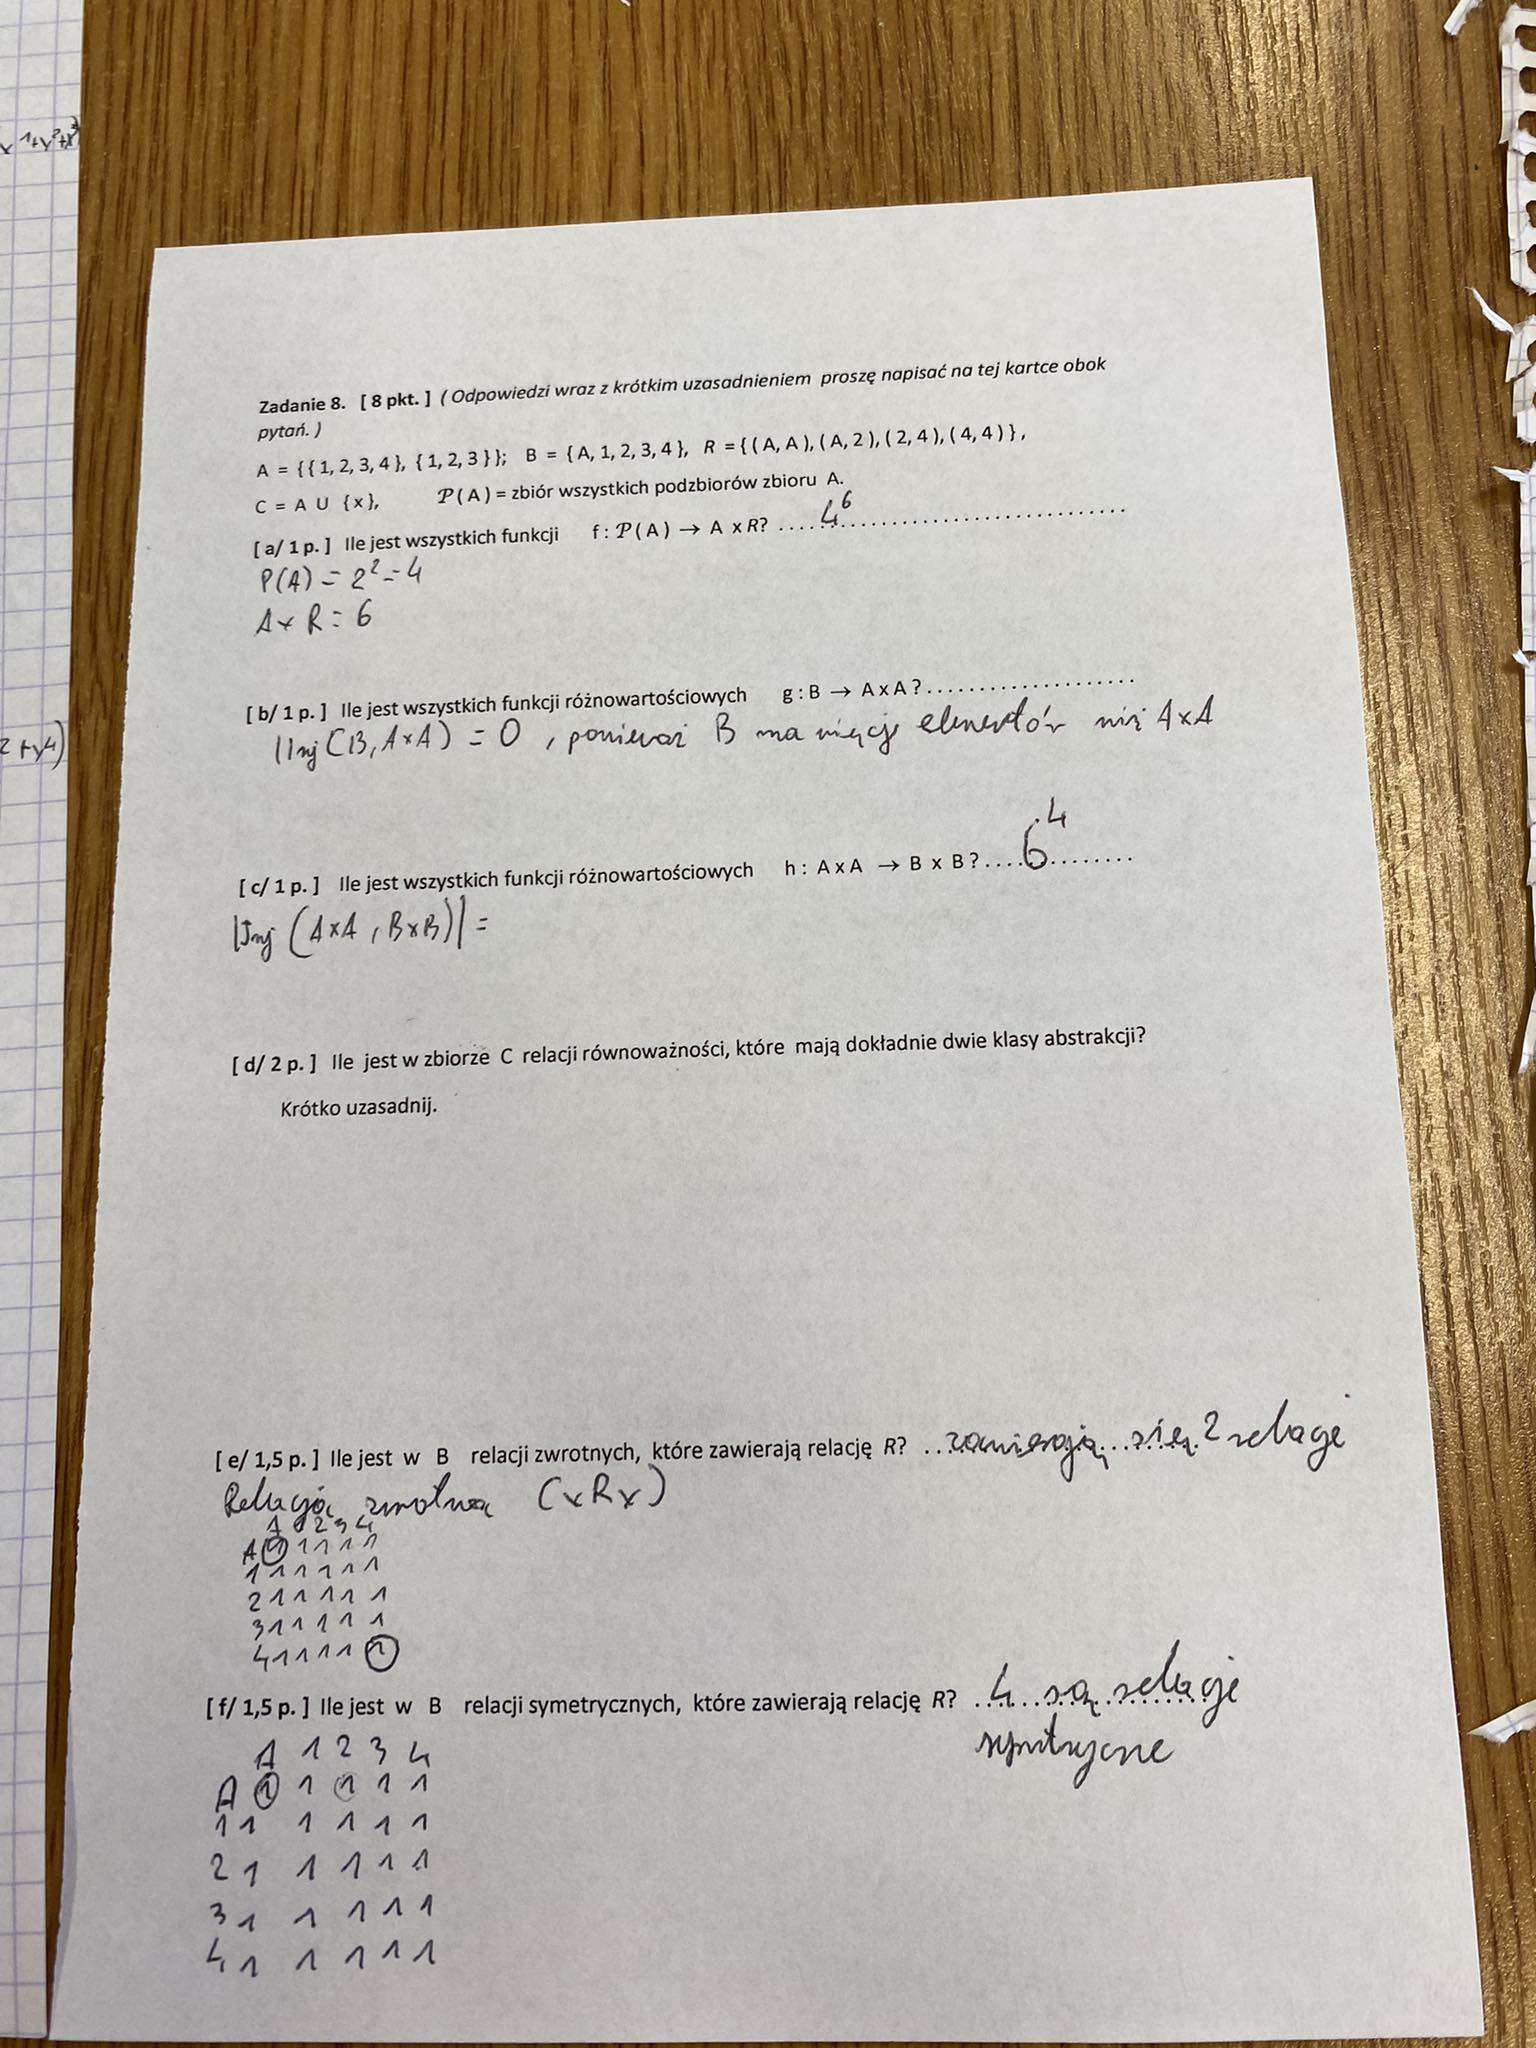 x 1+x²+x³
2+x⁴)
Zadanie 8. [ 8 pkt. ] ( Odpowiedzi wraz z krótkim uzasadnieniem proszę napisać na tej kartce obok
pytań. )
A = {{ 1, 2, 3, 4 }, { 1, 2, 3 }}; B = { A, 1, 2, 3, 4 }, R = { ( A, A ), ( A, 2 ), ( 2, 4 ), ( 4, 4 ) } ,
C = A ∪ {x}, 𝒫( A ) = zbiór wszystkich podzbiorów zbioru A.
[ a/ 1 p. ] Ile jest wszystkich funkcji f : 𝒫( A ) → A x R? 4⁶
P(A) = 2² = 4
A x R = 6
[ b/ 1 p. ] Ile jest wszystkich funkcji różnowartościowych g : B → A x A ?
|Inj (B, A×A) = 0 , ponieważ B ma więcej elementów niż A×A
[ c/ 1 p. ] Ile jest wszystkich funkcji różnowartościowych h : A x A → B x B ? 6⁴
|Inj (A×A , B×B)| =
[ d/ 2 p. ] Ile jest w zbiorze C relacji równoważności, które mają dokładnie dwie klasy abstrakcji?
Krótko uzasadnij.
[ e/ 1,5 p. ] Ile jest w B relacji zwrotnych, które zawierają relację R? zawierają się 2 relacje
Relacja zwrotna (xRx)
A 1 2 3 4
A 1 1 1 1 1
1 1 1 1 1 1
2 1 1 1 1 1
3 1 1 1 1 1
4 1 1 1 1 1
[ f/ 1,5 p. ] Ile jest w B relacji symetrycznych, które zawierają relację R? 4 są relacje
symetryczne
A 1 2 3 4
A 1 1 1 1 1
1 1 1 1 1 1
2 1 1 1 1 1
3 1 1 1 1 1
4 1 1 1 1 1